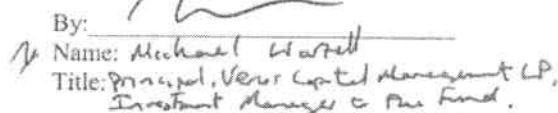 By:
Name: Michael Wartell
Title: Principal, Venor Capital Management LP,
Investment Manager to the Fund.